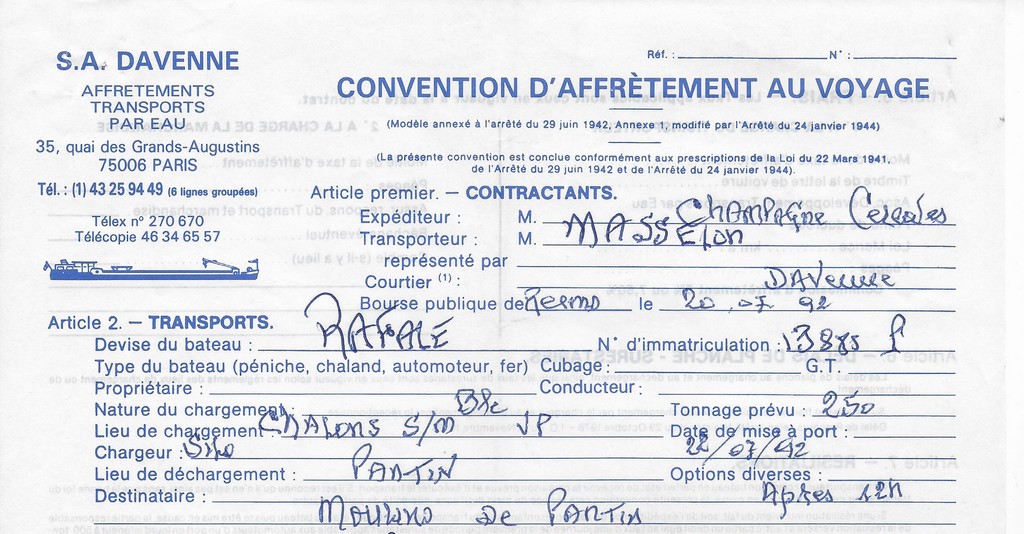 S.A. DAVENNE
AFFRETEMENTS
TRANSPORTS
PAR EAU
35, quai des Grands-Augustins
75006 PARIS
Tél. : (1) 43 25 94 49 (6 lignes groupées)
Télex n° 270 670
Télécopie 46 34 65 57
Réf. : N° :
CONVENTION D'AFFRÈTEMENT AU VOYAGE
(Modèle annexé à l'arrêté du 29 juin 1942, Annexe 1, modifié par l'Arrêté du 24 janvier 1944)
(La présente convention est conclue conformément aux prescriptions de la Loi du 22 Mars 1941,
de l'Arrêté du 29 juin 1942 et de l'Arrêté du 24 janvier 1944).
Article premier. — CONTRACTANTS.
Expéditeur : M. CHAMPAGNE Céréales
Transporteur : M. MASSELON
représenté par
Courtier (1) : DAVENNE
Bourse publique de Reims le 20 .07 92
Article 2. — TRANSPORTS.
Devise du bateau : RAFALE N° d'immatriculation :
Type du bateau (péniche, chaland, automoteur, fer) Cubage : G.T. :
Propriétaire : Conducteur :
Nature du chargement : Blé Tonnage prévu : 250
Lieu de chargement : CHALONS S/M VP Date de mise à port :
Chargeur : Silo 22/07/92
Lieu de déchargement : PANTIN Options diverses :
Destinataire : MOULINS DE PANTIN Après 12H